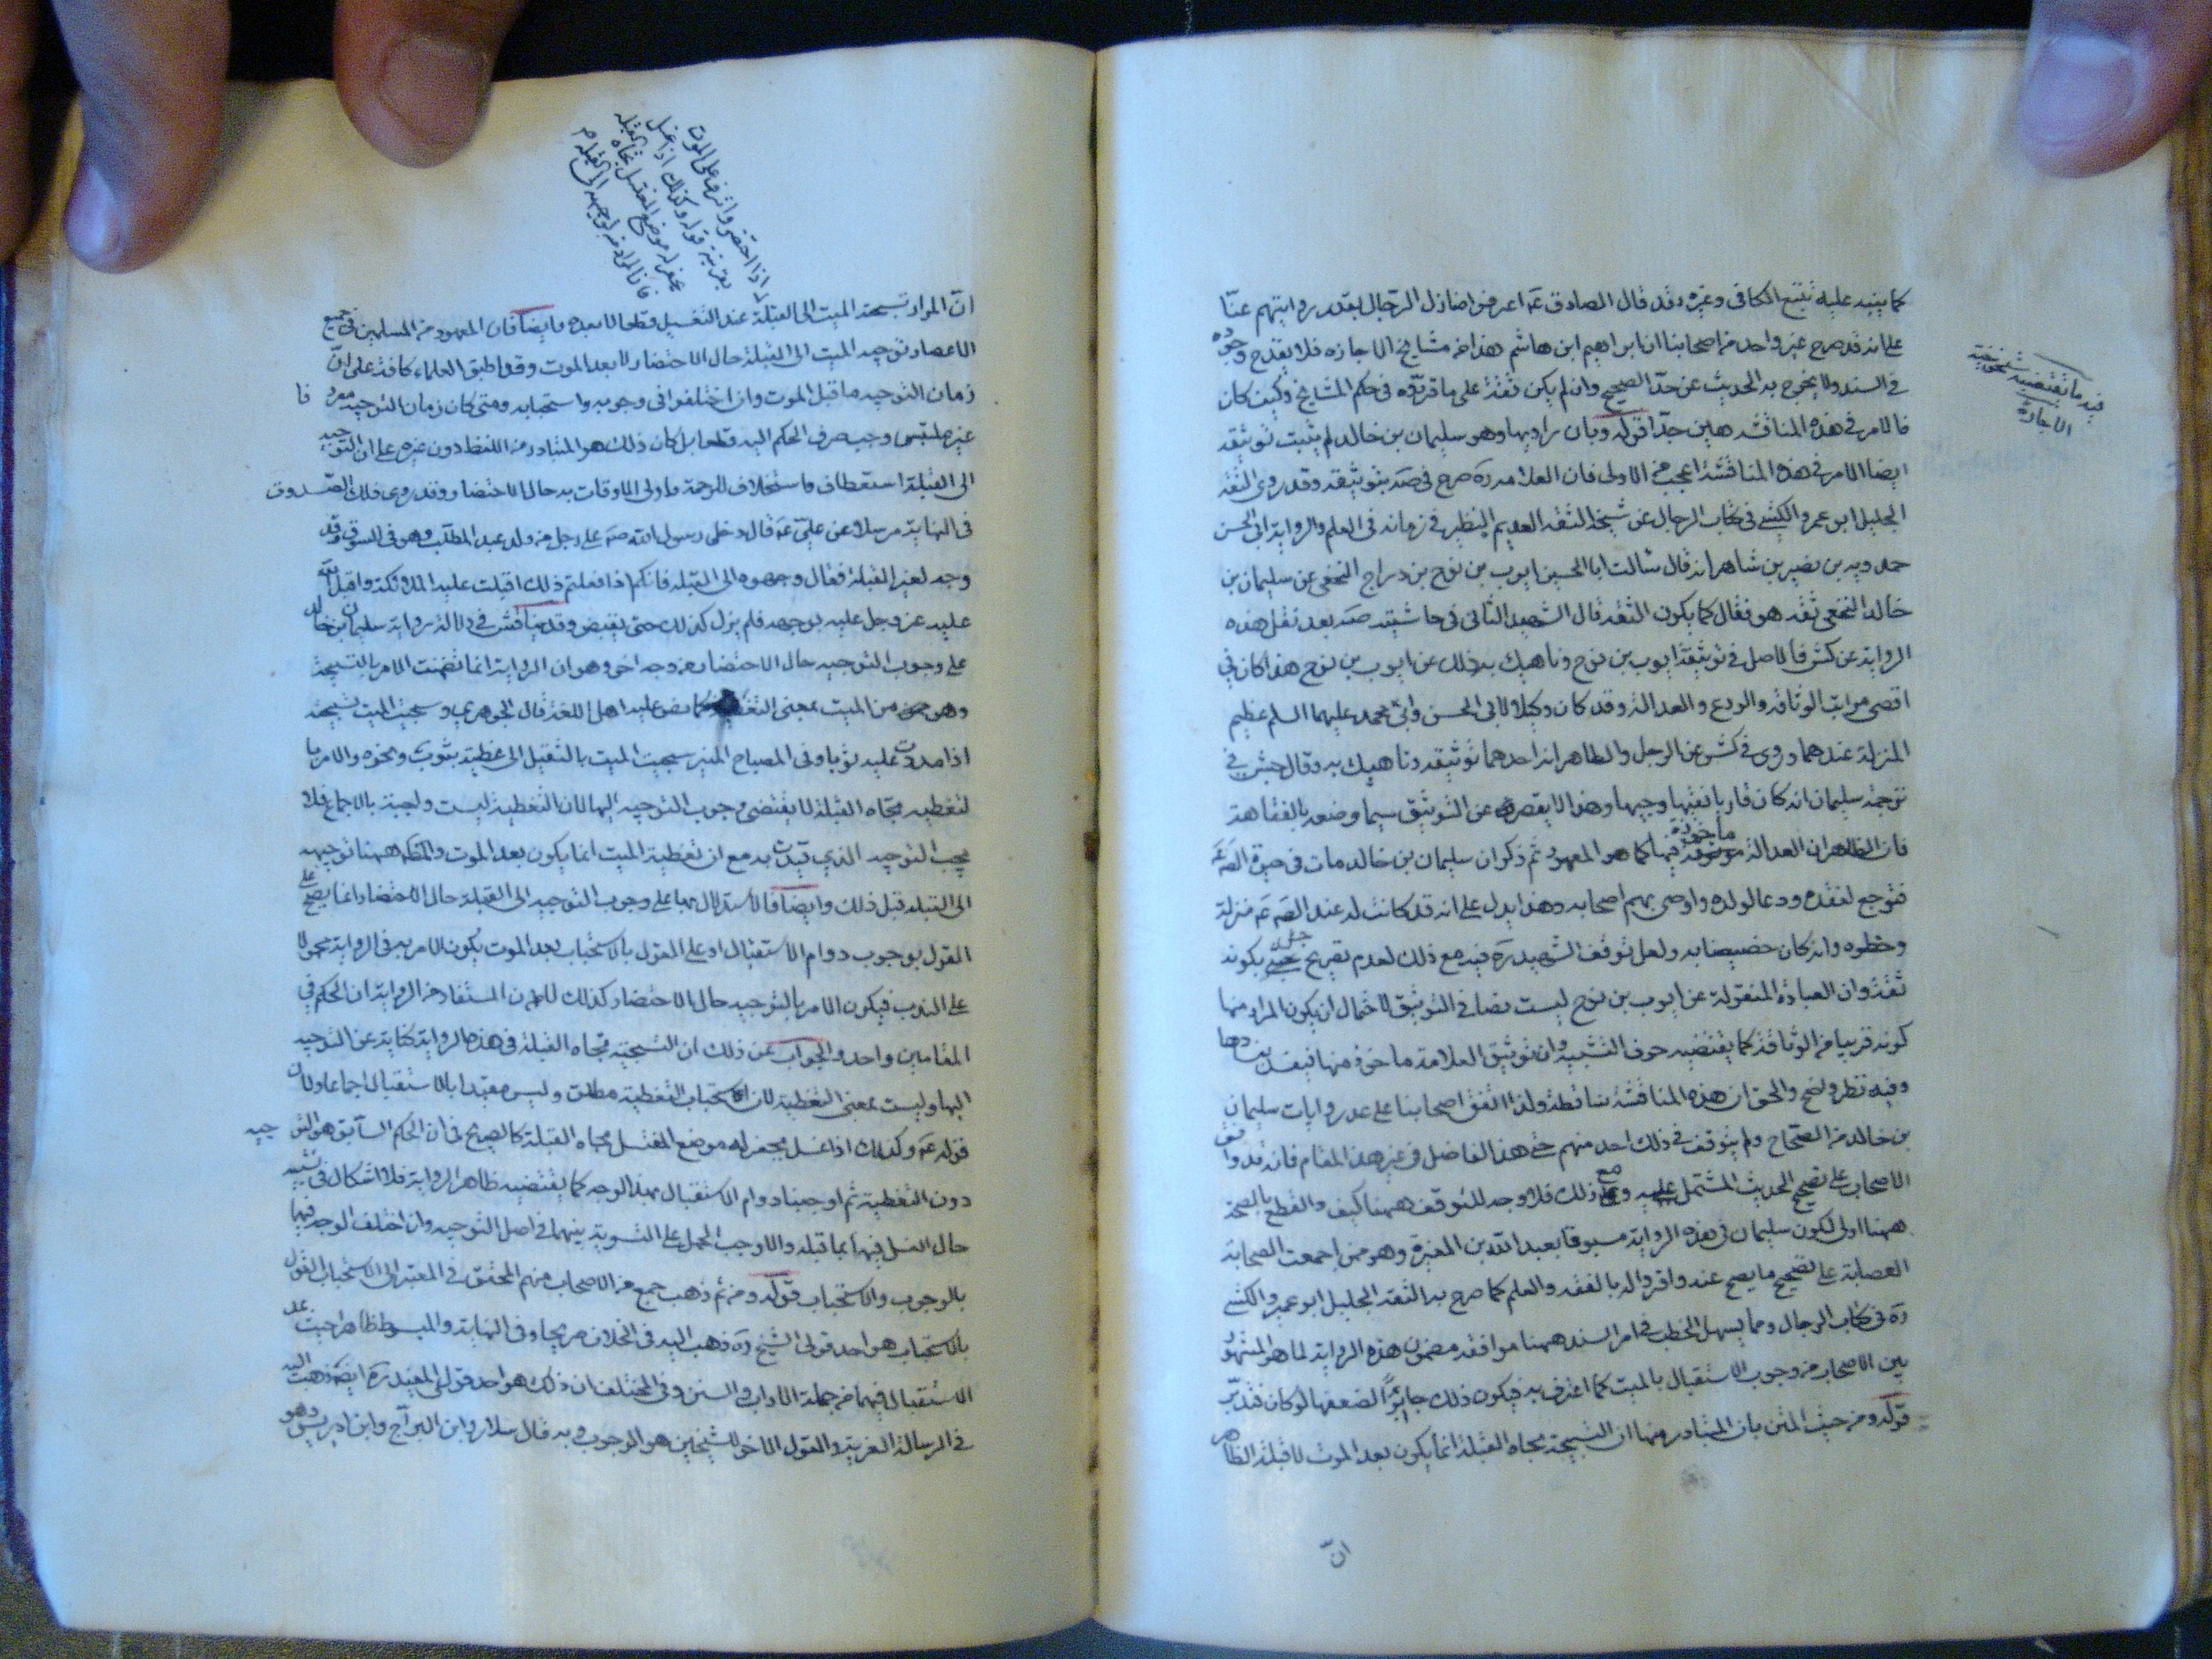 كما ينبه عليه تتبع الكافي وغيره وقد قال الصادق عَم اعرفوا منازل الرجال بقدر روايتهم عنّا
على انه قد صرح غير واحد من اصحابنا ان ابراهيم ابن هاشم هذا من مشايخ الاجازه فلا يقدح وجوده
في السند ولا يخرج به الحديث عن حدّ الصحيح وان لم يكن ثقة على ما قرّروه في حكم المشايخ وكيف كان
فالامر في هذه المناقشه هين جدّا قوله وبان راويها وهو سليمان بن خالد لم يثبت توثيقه
ايضا الامر في هذه المناقشة اعجب من الاولى فان العلامه ره صرح في صه بتوثيقه وقد روى الثقة
الجليل ابو عمرو الكشي في كتاب الرجال عن شيخه الثقه العديم النظير في زمانه في العلم والرواية ابى الحسن
حمدويه بن نصير بن شاهى انه قال سالت ابا الحسين ايوب بن نوح بن دراج النخعى عن سليمان بن
خالد النخعى ثقه هو فقال كما يكون الثقه قال الشهيد الثانى في حاشيته صه بعد نقل هذه
الرواية عن كش فالاصل في توثيقه ايوب بن نوح وناهيك به وذلك عن ايوب بن نوح هذا كان في
اقصى مراتب الوثاقة والورع والعدالة وقد كان وكيلا لابى الحسن وابى محمد عليهما السلم عظيم
المنزلة عندهما وروى في كش عن الرجل والظاهر انه احدهما توثيقه وناهيك به وقال جش في
ترجمة سليمان انه كان قاريا فقيها وجيها وهذا لا يقصر عن التوثيق سيما وصفه بالفقاهة
فان الظاهر ان العدالة ماخوذة فيها كما هو المعهود ثم ذكر ان سليمان بن خالد مات في حيوة الصّ عَم
فتوجع لفقده ودعا لولده واوصى بهم اصحابه وهذا يدل على انه قد كانت له عند الصّ عَم منزلة
وحظوه وانه كان خصيصا به ولعل توقف الشهيد ره فيه مع ذلك لعدم تصريح جش بكونه
ثقة وان العبارة المنقولة عن ايوب بن نوح ليست نصا في التوثيق لاحتمال ان يكون المراد منها
كونه قريبا من الوثاقة كما يقتضيه حرف التشبيه وان توثيق العلامة ماخوذ منها
وفيه نظر واضح والحق ان هذه المناقشة ساقطة ولذا اتفق اصحابنا على عد روايات سليمان
بن خالد من الصّحاح ولم يتوقف في ذلك احد منهم حتى هذا الفاضل في غير هذا المقام فانه قد وافق
الاصحاب على تصحيح الحديث المشتمل عليه ومع ذلك فلا وجه للتوقف ههنا كيف والقطع بالصحة
ههنا اولى لكون سليمان في هذه الرواية مسبوقا بعبد الله بن المغيرة وهو ممن اجمعت الصحابة
العصابة على تصحيح ما يصح عنه واقروا له بالفقه والعلم كما صرح به الثقة الجليل ابو عمرو الكشى
ره في كتاب الرجال ومما يسهل الخطب في امر السند ههنا موافقة مضمون هذه الرواية لما هو المشهور
بين الاصحاب من وجوب الاستقبال بالميت كما اعترف به فيكون ذلك جابرًا لضعفها لو كان فتدبّر
قوله ومن حيث المتن بان المتبادر منها ان التسجية تجاه القبلة انما يكون بعد الموت لا قبلة الظاهر
فيه ما تقتضيه شيخوخية
الاجازة
انّ
اذا احتضر واشرف على الموت
بقرينة قوله وكذلك اذا غسل
يحفر له موضع المغتسل تجاه القبلة
فان المراد منه توجيهه الى القبلة
انّ المراد تسجية الميت الى القبلة عند التغسيل قطعا لا بعده وايضا فان المعهود من المسلمين في جميع
الاعصار توجيه الميت الى القبلة حال الاحتضار لا بعد الموت وقد اطبق العلماء كافة على انّ
زمان التوجيه ما قبل الموت وان اختلفوا في وجوبه واستحبابه ومتى كان زمان التوجيه
غير ملتبس وجب صرف الحكم اليه قطعا بل كان ذلك هو المتبادر من اللفظ دون غيره على ان التوجيه
الى القبلة استعطاف واستخلاف للرحمة واولى الاوقات به حال الاحتضار وقد روى ذلك الصّدوق
في النهاية مرسلا عن علىّ عَم قال دخل رسول الله صَم على رجل من ولد عبد المطّلب وهو في السوق وقد
وجه لغير القبلة فقال وجهوه الى القبلة فانكم اذا فعلتم ذلك اقبلت عليه الملائكة واقبل الله
عليه عز وجل عليه بوجهه فلم يزل كذلك حتى يقبض وقد يناقش في دلالة رواية سليمان بن خالد
على وجوب التوجيه حال الاحتضار من وجه اخر وهو ان الرواية انما تضمنت الامر بالتسجية
وهو من الميت بمعنى التغطية كما نص عليه اهل اللغة قال الجوهري وسجيت الميت تسجية
اذا مددت عليه ثوبا وفى المصباح المنير سجيت الميت بالتثقيل الى غطيته بثوب ونحوه والامر با
لتغطيه تجاه القبلة لا يقتضى وجوب التوجيه اليها لان التغطية ليست واجبة بالاجماع فلا
يجب التوجيه الذي قيدت به مع ان تغطية الميت انما يكون بعد الموت والحكم ههنا توجيهه
الى القبله قبل ذلك وايضا فالاستدلال بها على وجوب التوجيه الى القبلة حال الاحتضار انما يصح على
القول بوجوب دوام الاستقبال او على القول بالاستحباب بعد الموت يكون الامر به في الرواية محمولا
على الندب فيكون الامر بالتوجيه حال الاحتضار كذلك لان المستفاد من الرواية ان الحكم في
المقامين واحد والجواب عن ذلك ان التسجية تجاه القبلة في هذه الرواية كناية عن التوجيه
اليها وليست بمعنى التغطية لان استحباب التغطية مطلق وليس مقيدا بالاستقبال اجماعا ولان
قوله عَم وكذلك اذا غسل يحفر له موضع المغتسل تجاه القبلة كالصريح في ان الحكم السابق هو التوجيه
دون التغطية ثم اوجبنا دوام الاستقبال بهذا الوجه كما يقتضيه ظاهر الرواية فلا اشكال في تشبيه
حال الغسل فيها بما قبله والا وجب الحمل على التسوية بينهما في اصل التوجيه وان اختلف الوجه فيهما
بالوجوب والاستحباب قوله ومن ثم ذهب جمع من الاصحاب منهم المحقق في المعتبر الى الاستحباب القول
بالاستحباب هو احد قولى الشيخ ره ذهب اليه في الخلاف صريحا وفى النهاية والمبسوط ظاهرا حيث عد
الاستقبال فيهما من جملة الاداب والسنن وفى المختلف ان ذلك هو احد قولى المفيد ره ايضا ذهب اليه
في الرسالة الغرية والقول الاخر للشيخين هو الوجوب وبه قال سلار وابن البراج وابن ادريس وهو